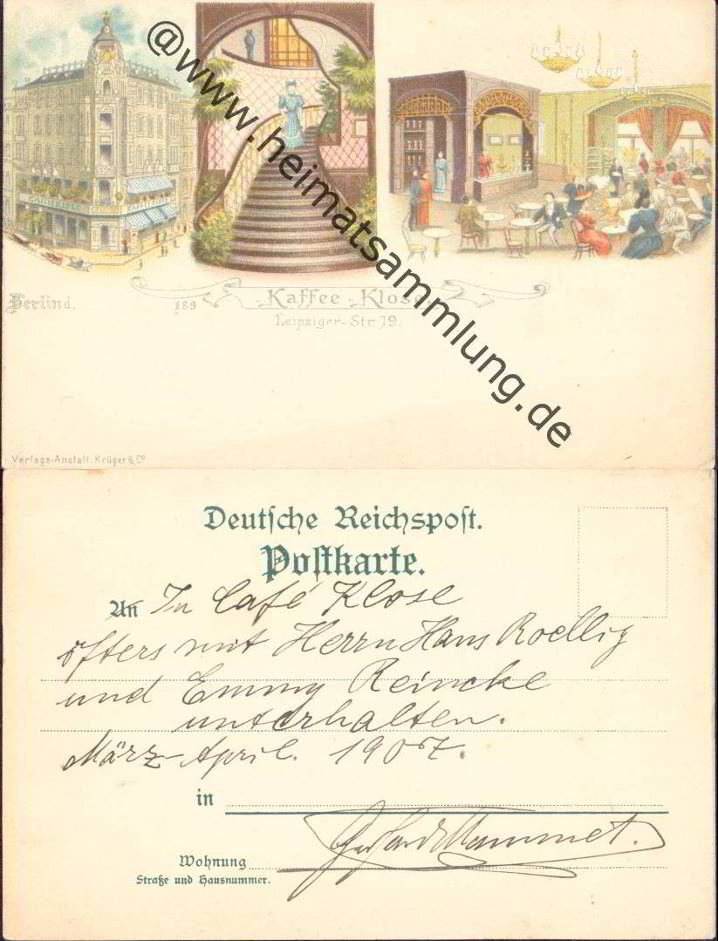 @www.heimatsammlung.de
Berlin d. 189
Kaffee Klose
Leipziger-Str. 19.
Verlags-Anstalt. Krüger & Co
Deutsche Reichspost.
Postkarte.
An In Café Klose
öfters mit Herrn Hans Roellig
und Emmy Reincke
unterhalten.
März-April. 1907.
in
Wohnung
Straße und Hausnummer.